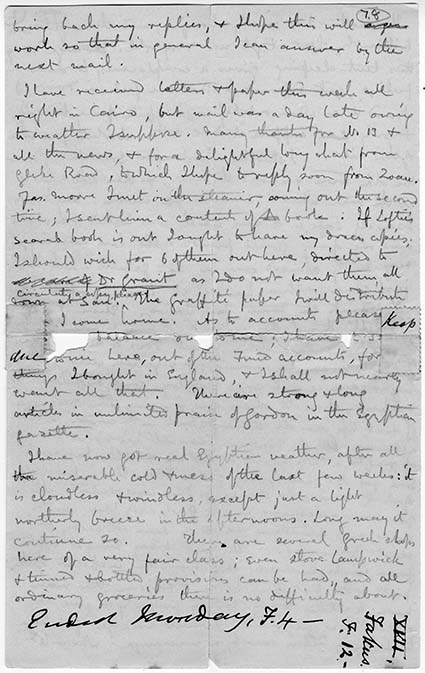 78
bring back my replies, & I hope this will
work so that in general I can answer by the
next mail.
I have received letters & paper this week all
right in Cairo, but mail was a day late owing
to weather I suppose. Many thanks for No. 13 &
all the news, & for a delightful long chat from
Globe Road, to which I hope to reply soon from Zoan.
Jas. Moore I met on the steamer, coming out the second
time; I sent him a content of books. If Loftie's
scarab book is out I ought to have my dozen copies.
I should wish for 6 of them out here, directed to
Dr Grant as I do not want them all
at San. The Graffiti paper I will distribute
circulate a copy please
I come home. As to accounts please Keep
balance
due me here, out of the Fund accounts, for
things I bought in England, & I shall not nearly
want all that. There are strong & long
articles in unlimited praise of Gordon in the Egyptian
gazette.
I have now got real Egyptian weather, after all
the miserable cold & mess of the last few weeks: it
is cloudless & windless, except just a light
northerly breeze in the afternoons. Long may it
continue so. There are several Greek shops
here of a very fair class; even stove lampwick
& tinned & bottled provisions can be had, and all
ordinary groceries there is no difficulty about.
Ended Monday, F. 4 –
XVII.
Fakus.
F. 12. –